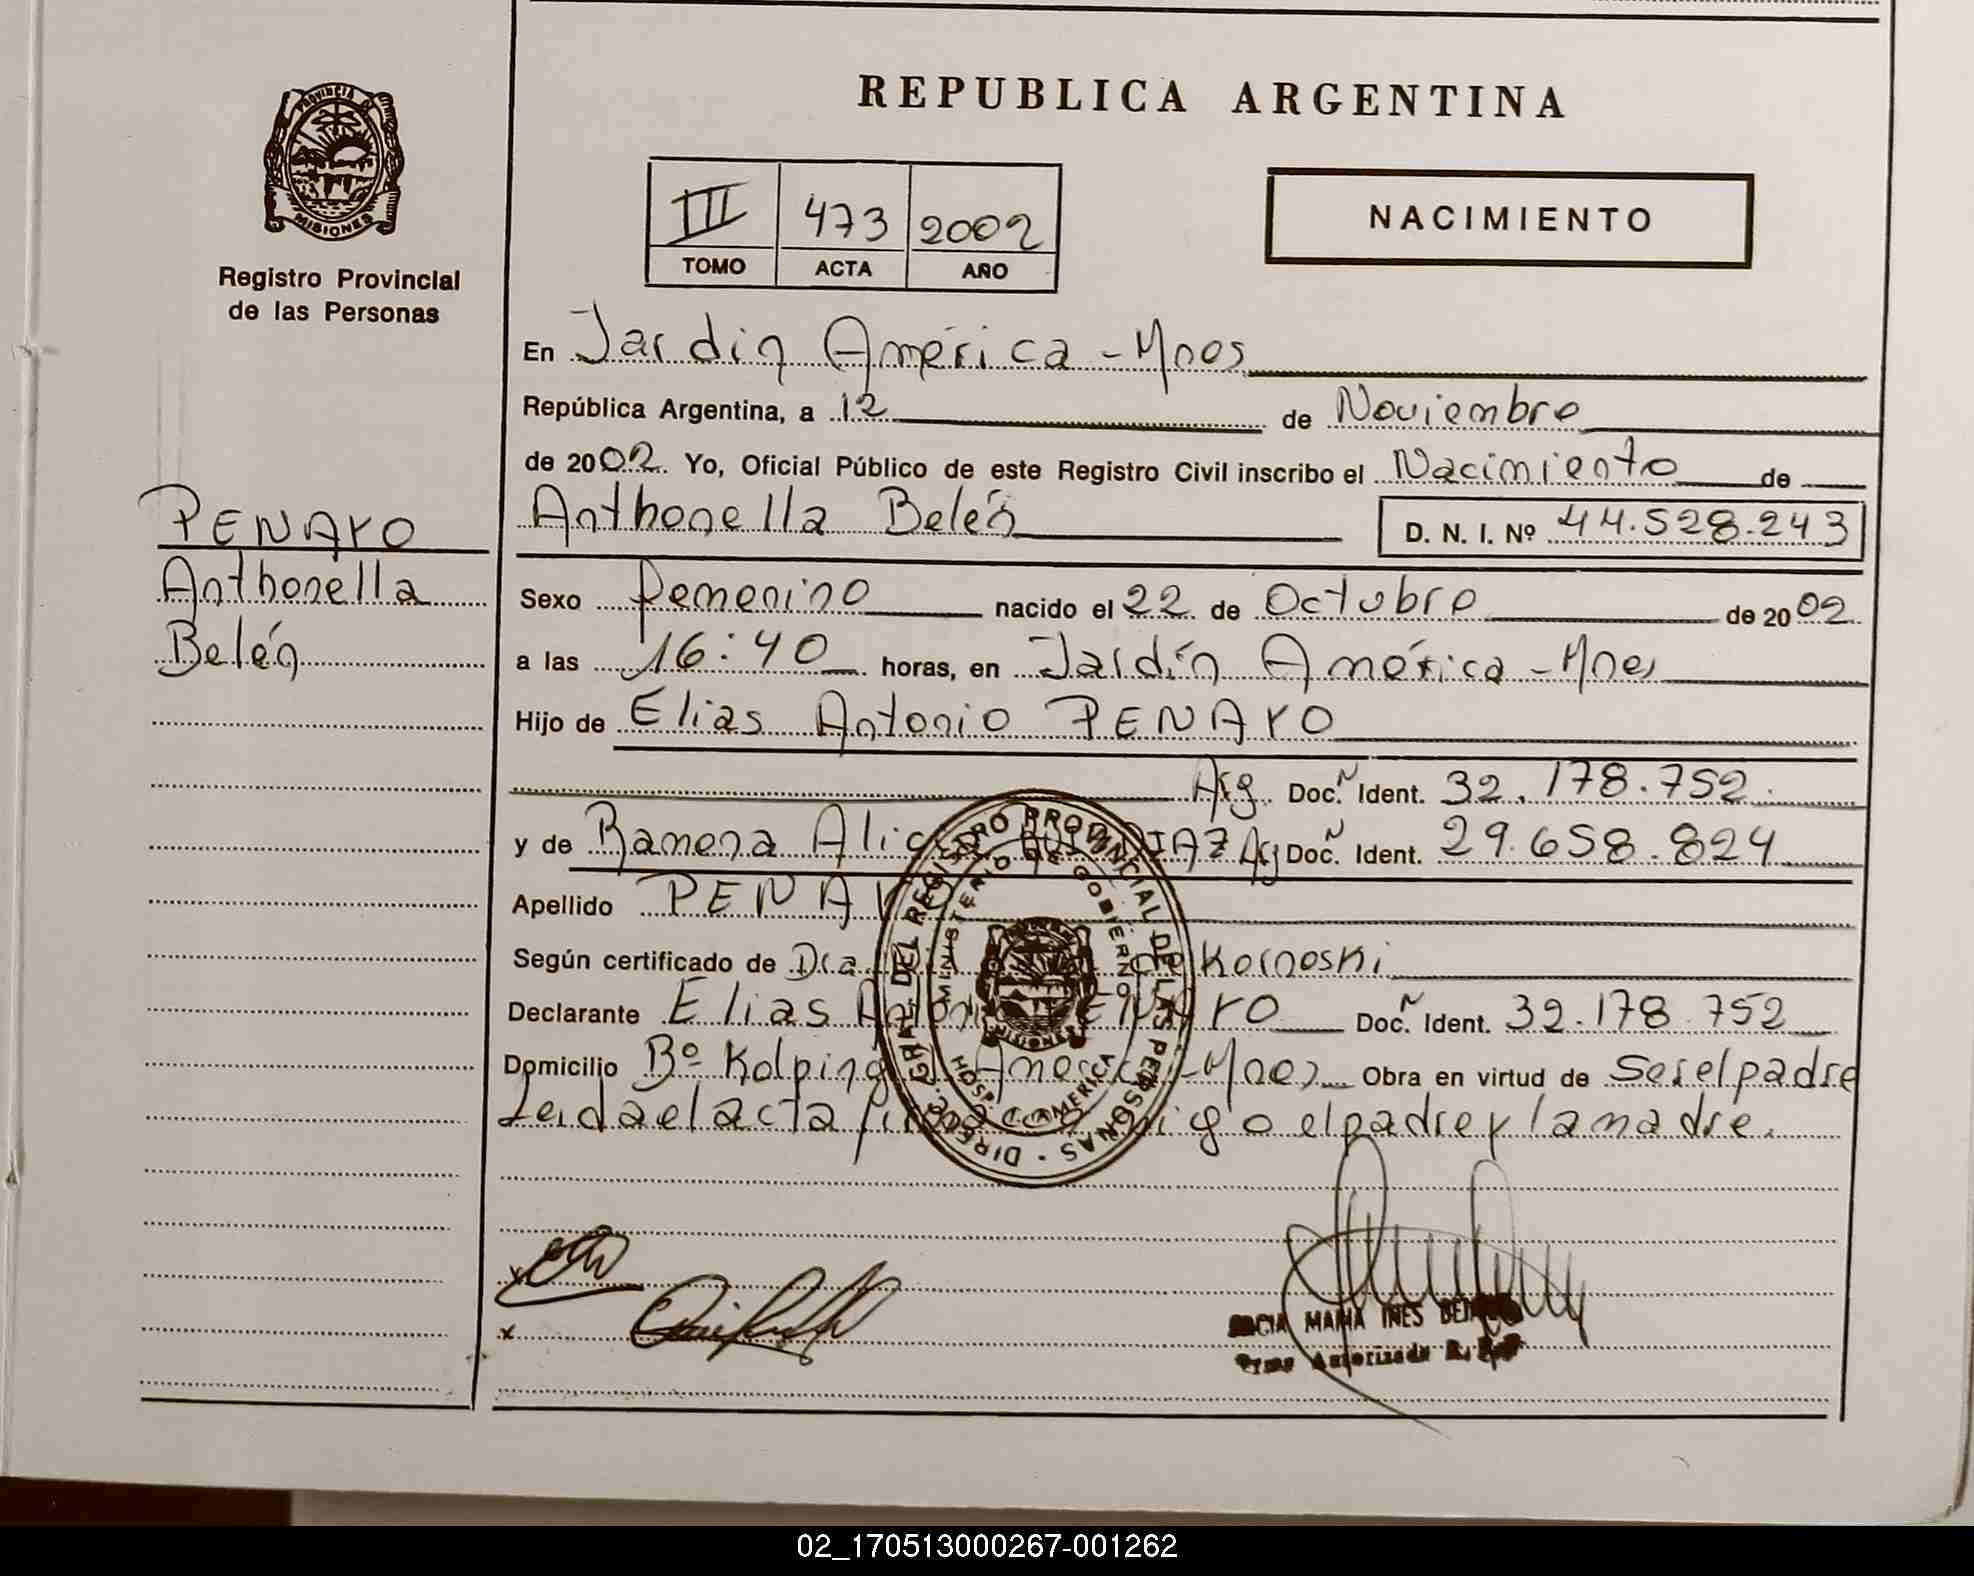 REPUBLICA ARGENTINA
PROVINCIA DE MISIONES
Registro Provincial
de las Personas
III 473 2002
TOMO ACTA AÑO
NACIMIENTO
En Jardin América - Mnes
República Argentina, a 12 de Noviembre
de 2002. Yo, Oficial Público de este Registro Civil inscribo el Nacimiento de
PENAYO
Anthonella
Belén
Anthonella Belén D. N. I. Nº 44.528.243
Sexo Femenino nacido el 22 de Octubre de 2002
a las 16:40 horas, en Jardín América - Mnes
Hijo de Elias Antonio PENAYO
Arg. Doc. Ident. 32.178.752.
y de Ramona Alicia DIAZ Arg Doc. Ident. 29.658.824
Apellido PENAYO
Según certificado de Dra. de Kornoski
Declarante Elias Antonio PENAYO Doc. Ident. 32.178.752
Domicilio Bº Kolping J. America - Mnes Obra en virtud de Ser el padre
Leida el acta firma conmigo el padre y la madre.
DIREC. GRAL. DEL REGISTRO PROVINCIAL DE LAS PERSONAS
MINISTERIO DE GOBIERNO
MISIONES
HOSP. J. AMERICA
x
x
MARIA INES
Autorizada
02_170513000267-001262